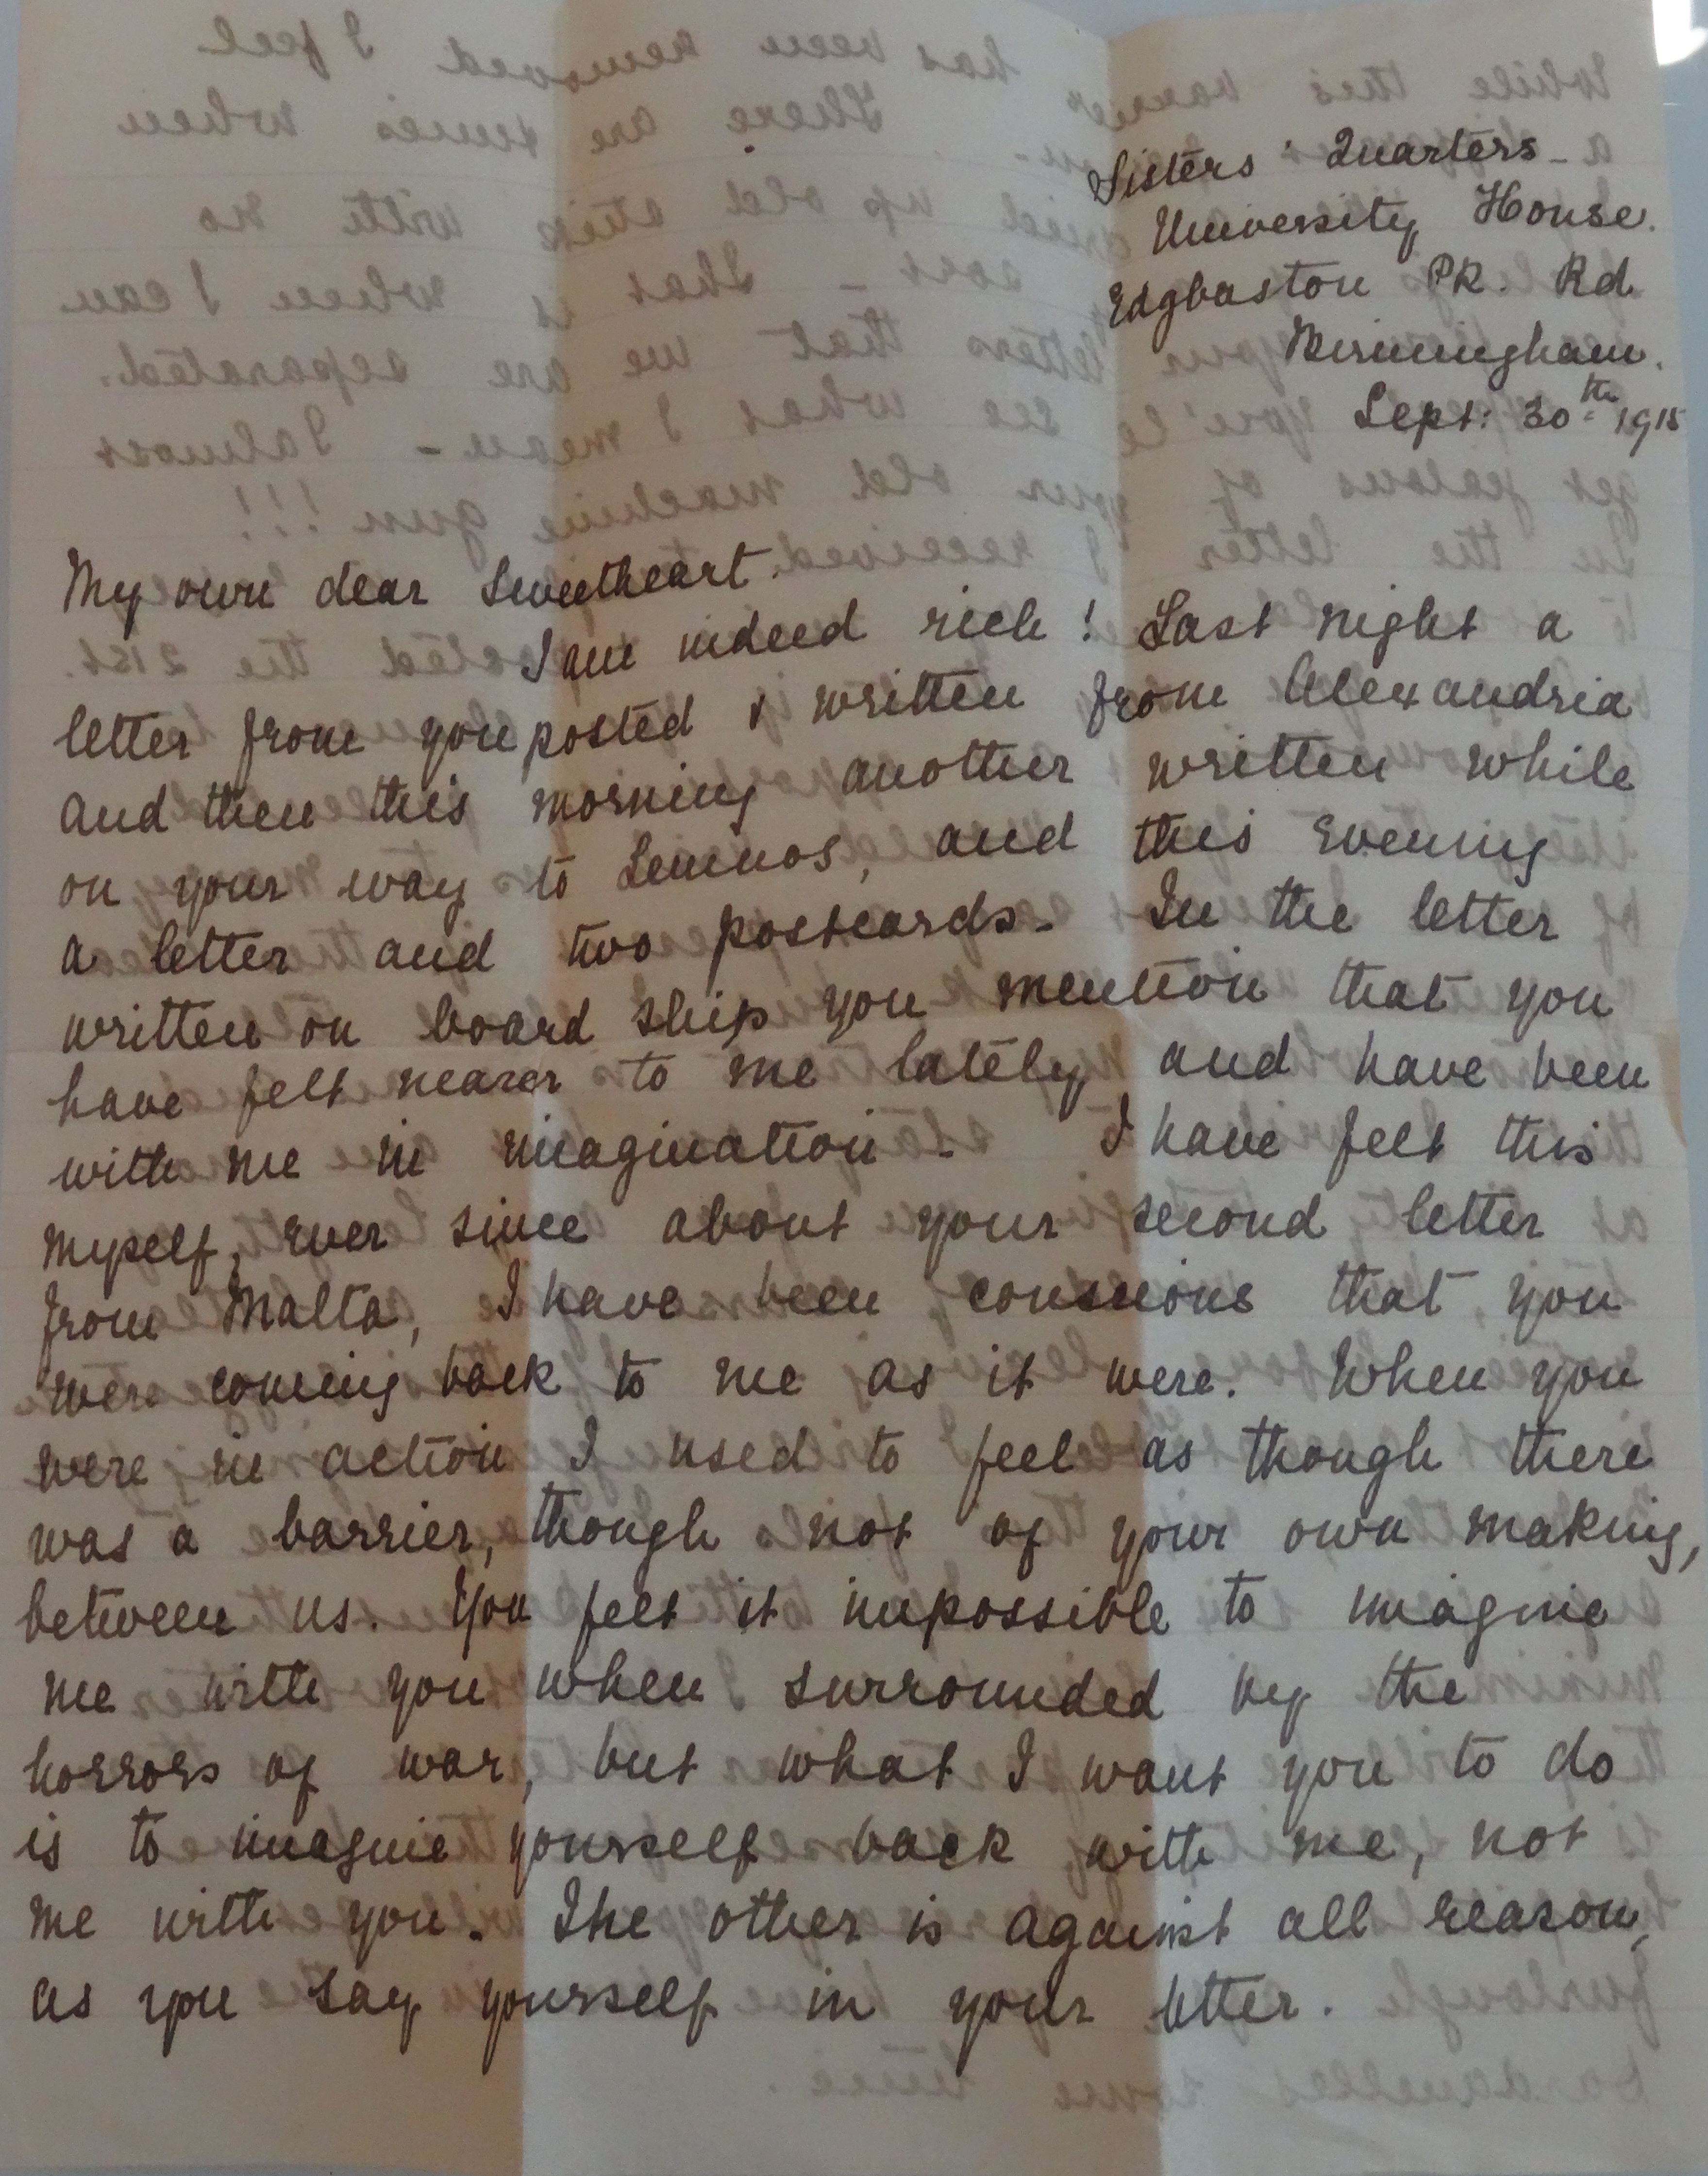 Sisters' Quarters
University House.
Edgbaston Pk. Rd
Birmingham.
Sept: 30th 1915
My own dear Sweetheart.
I am indeed rich! Last night a
letter from you posted & written from Alexandria
and then this morning another written while
on your way to Lemnos, and this evening
a letter and two postcards. In the letter
written on board ship you mention that you
have felt nearer to me lately and have been
with me in imagination. I have felt this
myself, ever since about your second letter
from Malta, I have been conscious that you
were coming back to me as it were. When you
were in action I used to feel as though there
was a barrier, though not of your own making,
between us. You felt it impossible to imagine
me with you when surrounded by the
horrors of war, but what I want you to do
is to imagine yourself back with me, not
me with you. The other is against all reason,
as you say yourself in your letter.